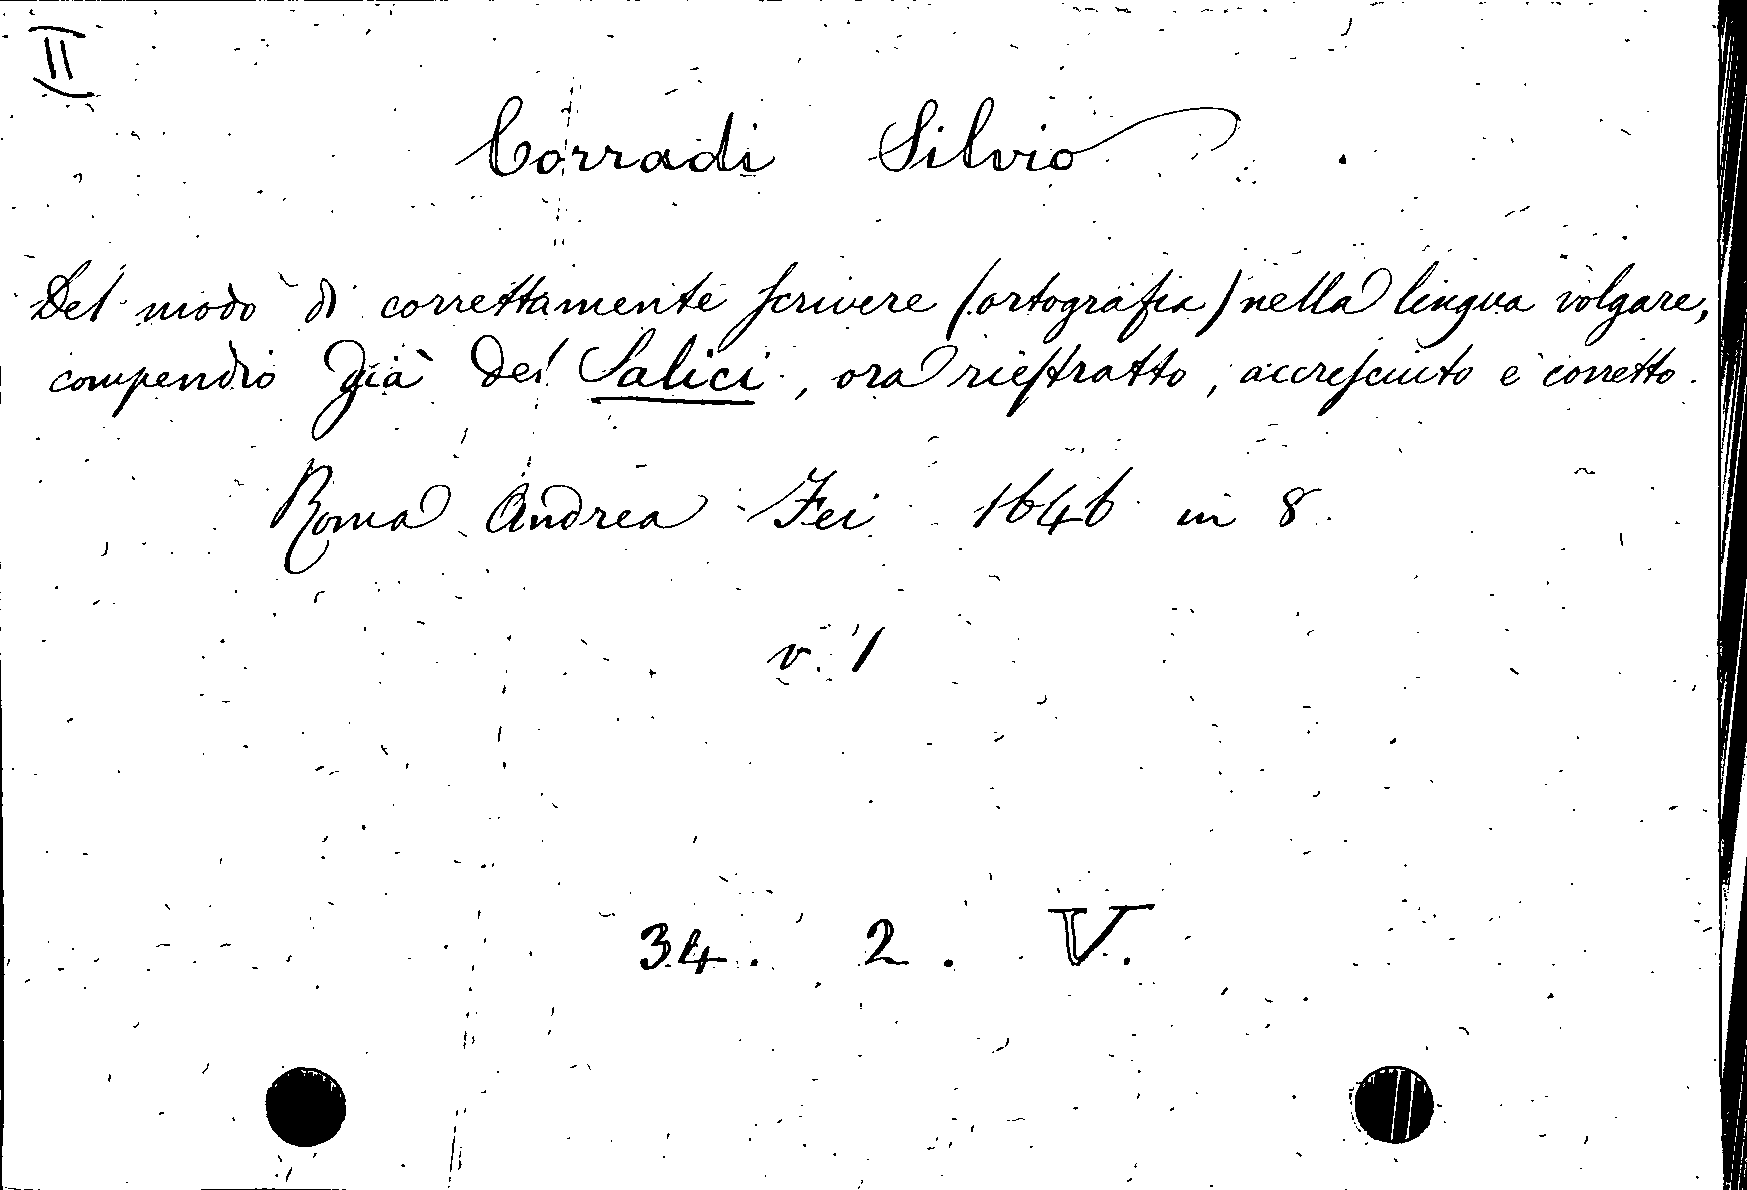 II
Corradi Silvio
Del modo di correttamente scrivere (ortografia) nella lingua volgare,
compendio già del Salici, ora riestratto, accresciuto e corretto.
Roma Andrea Fei 1646 in 8.
v. 1
34. 2. V.